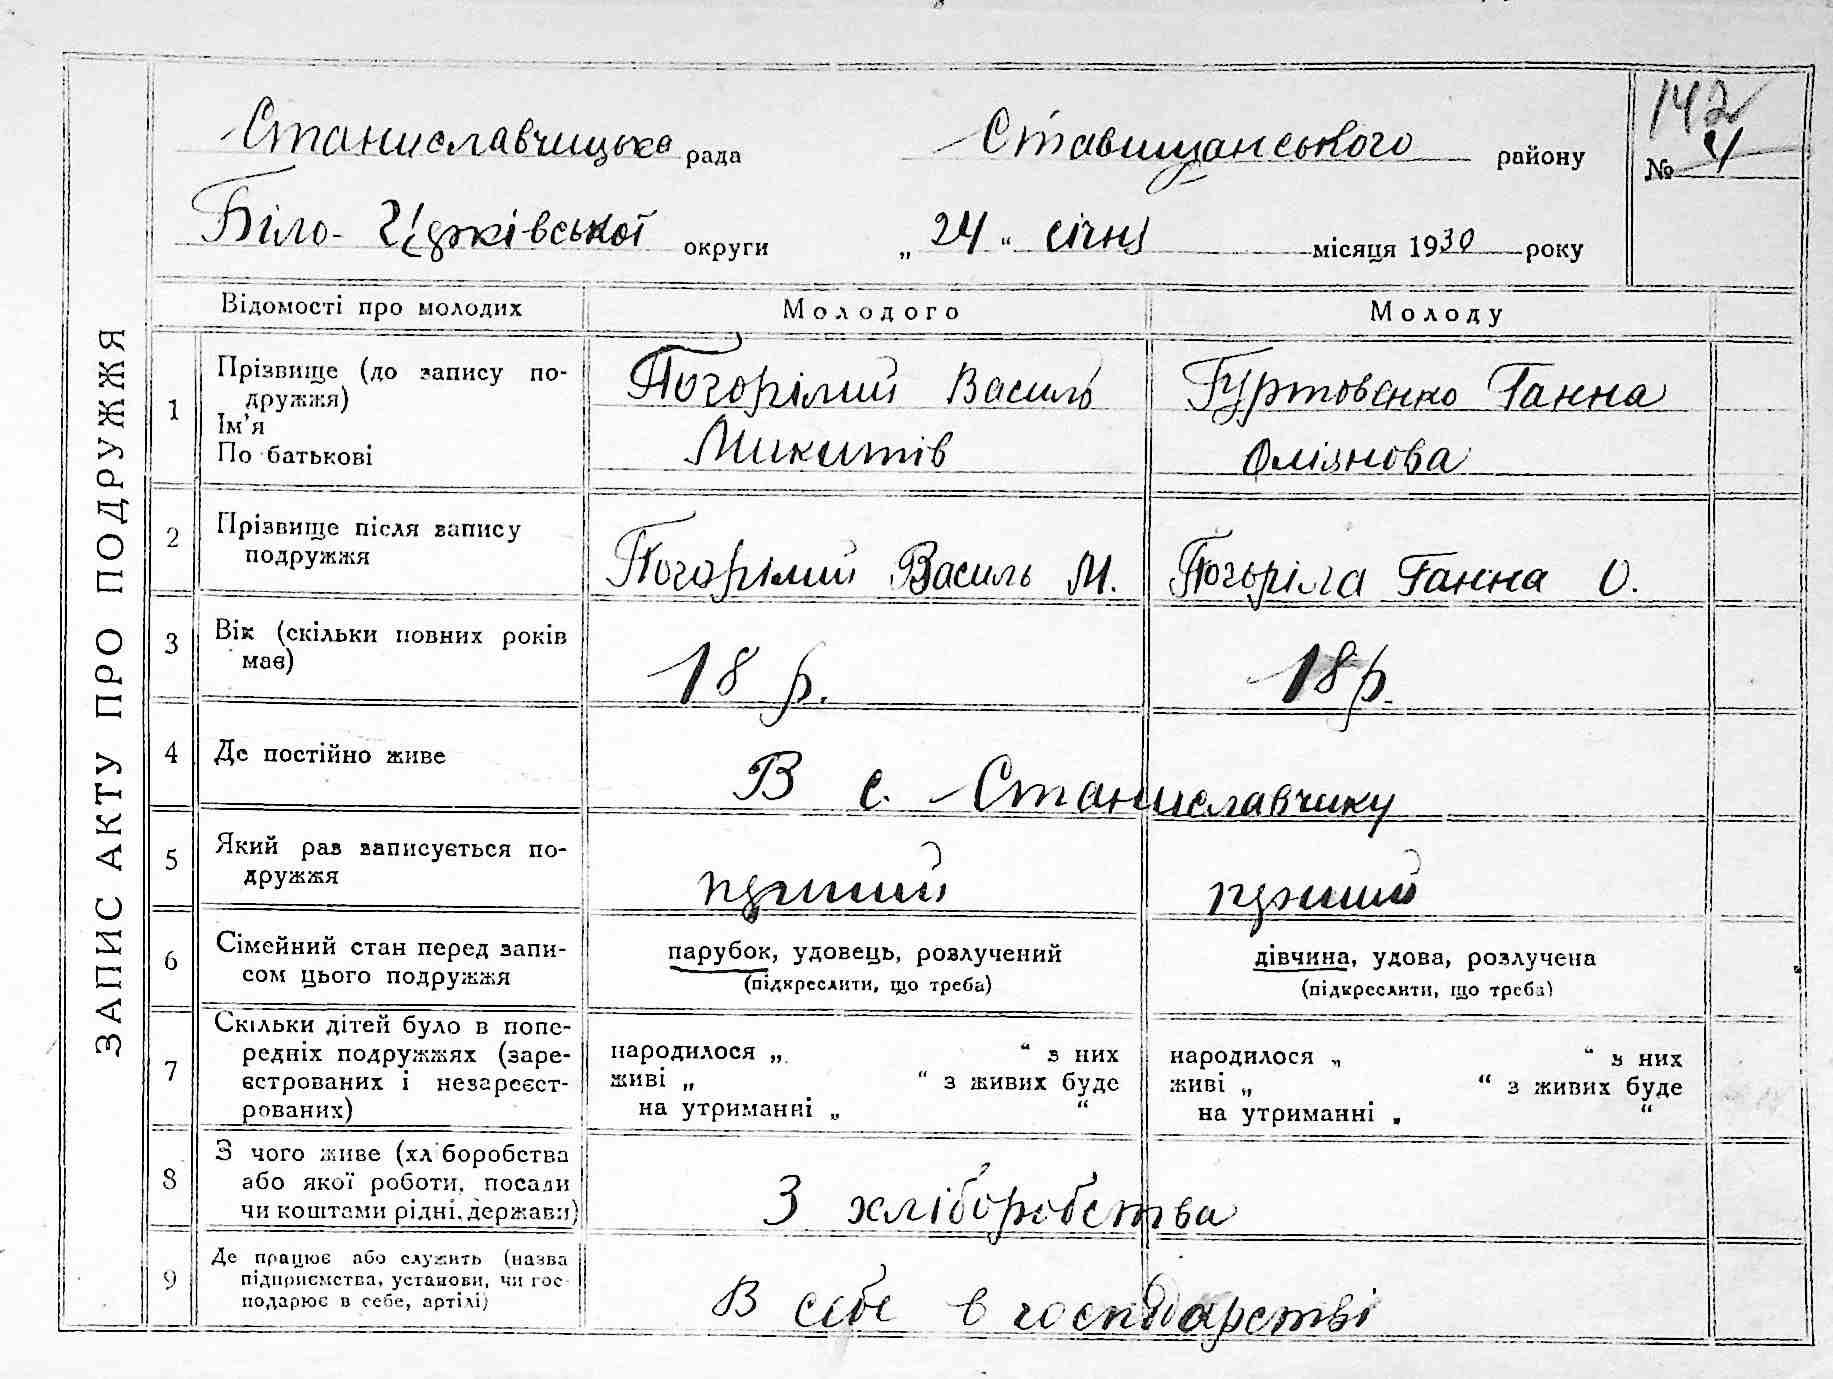 ЗАПИС АКТУ ПРО ПОДРУЖЖЯ
142
Станиславчицька рада Ставищанського району № 4
Біло-Црківської округи „ 24 “ січня місяця 1930 року
Відомості про молодих Молодого Молоду
1 Прізвище (до запису по-
дружжя)
Ім'я
По батькові
Погорілий Василь
Микитів
Гуртовенко Ганна
Оліянова
2 Прізвище після запису
подружжя
Погорілий Василь М. Погоріла Ганна О.
3 Вік (скільки повних років
має)
18 р. 18 р.
4 Де постійно живе В с. Станиславчику
5 Який раз записується по-
дружжя
перший перший
6 Сімейний стан перед запи-
сом цього подружжя
парубок, удовець, розлучений
(підкреслити, що треба)
дівчина, удова, розлучена
(підкреслити, що треба)
7 Скільки дітей було в попе-
редніх подружжях (заре-
єстрованих і незареєст-
рованих)
народилося „ “ з них
живі „ “ з живих буде
на утриманні „ “
народилося „ “ з них
живі „ “ з живих буде
на утриманні „ “
8 З чого живе (хліборобства
або якої роботи, посади
чи коштами рідні, держави)
З хліборобства
9 Де працює або служить (назва
підприємства, установи, чи гос-
подарює в себе, артілі)
В себе в господарстві